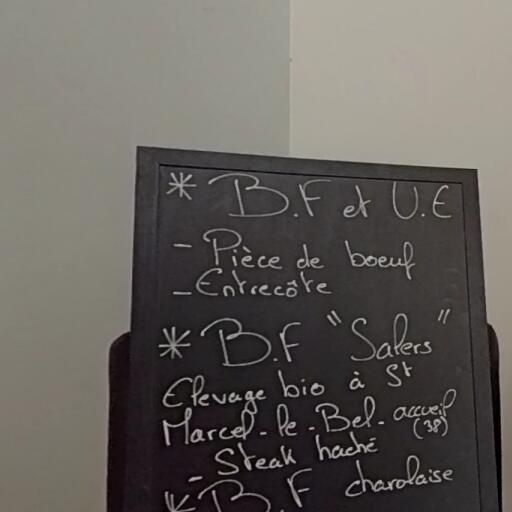 * B.F et U.E
- Pièce de boeuf
- Entrecôte
* B.F "Salers"
Elevage bio à St
Marcel-le-Bel-accueil
(38)
- Steak haché
* B.F charolaise